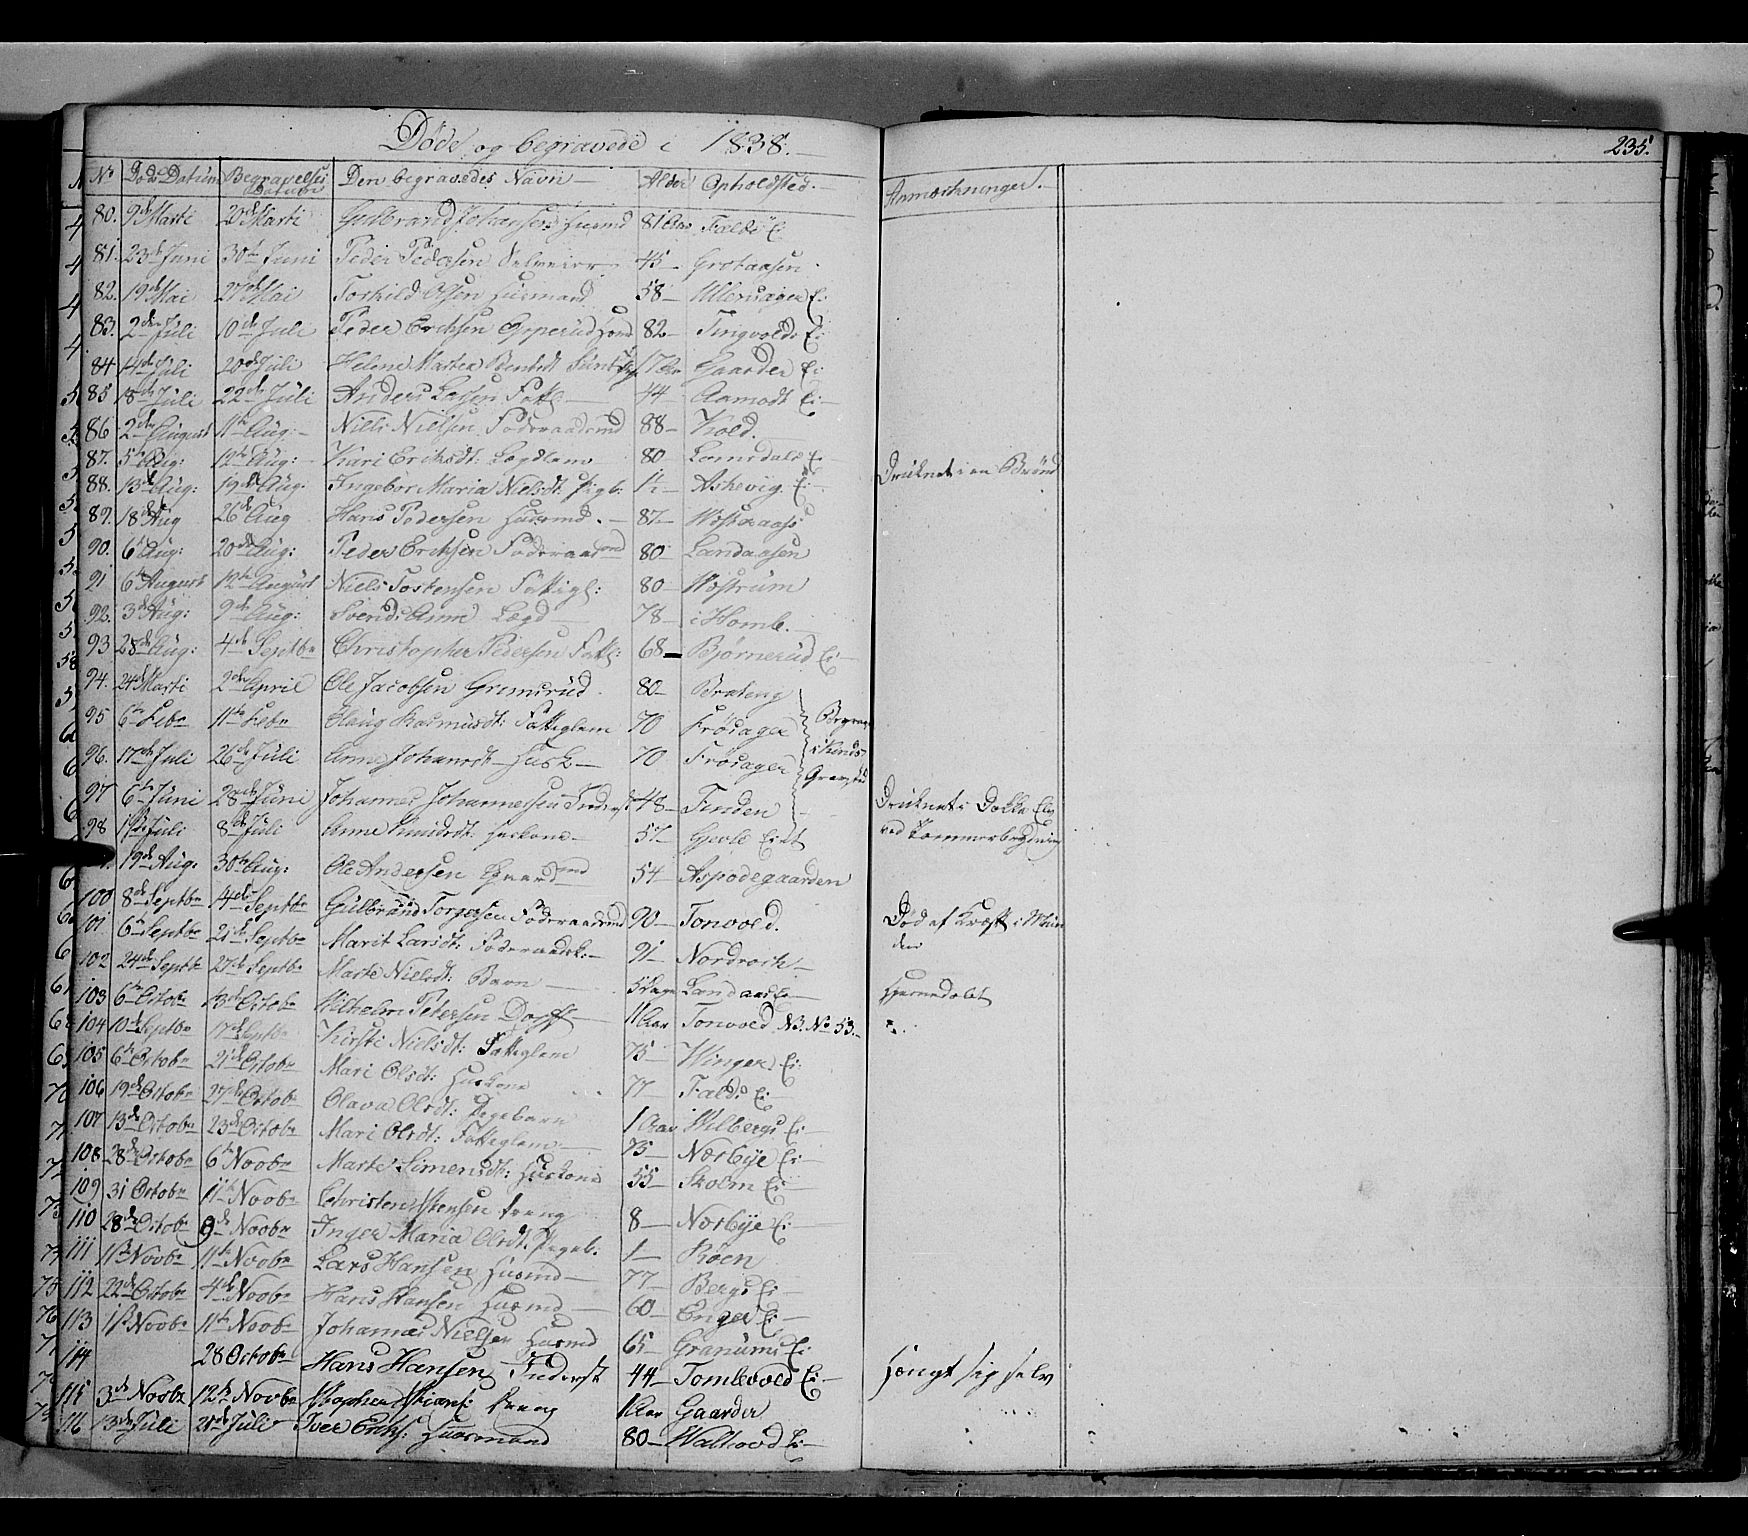 Døde og begravede i 1838.
235.
No Døds Datum Begravelses Datum Den begravedes Navn Alder Opholdsted. Anmærkninger.
80. 9de Marti 20de Marti Gulbrand Johansen Husmd 81 Aar Falds Ei
81. 23de Juni 30te Juni Peder Pedersen Selveier 45 — Grotaasen
82. 19de Mai 27de Mai Torkild Olsen Husmand 58 — Ullensager Ei
83. 2den Juli 10de Juli Peder Erichsen Opperud 82 — Tingvolds Ei
84 14de Juli 20de Juli Helene Martea Berntsdt 17 Gaarder Ei
85 18de Juli 22de Juli Anders Larsen Fattl — 44 — Aamodt Ei —
86 2den August 11te Aug: — Niels Nielsen Føderaadsmd 88 — Kold.
87. 5te Aug: 12te Aug: — Kari Eriksdt: Lægdlem 80 Lomsdals Ei —
88. 13de Aug: 19de Aug. Ingebor Maria Nielsdt: Pigb: 1½ — Askevig Ei — Druknet i en Brønd
89. 18de Aug 26de Aug Hans Pedersen Husmd. — 87 — Westeraas
90. 6te Aug: 20de Aug: Peder Erichsen Føderaadmd 80 — Landaasen
91 6te August 12te August Niels Tostensen Fattigl: 80 — Westrum
92. 3de Aug: 9de Aug: Anne Lægd — 78 — i Homb.
93 28de Aug: 4de Septbr Christopher Pedersen Fattl: 68 — Bjørnerud Ei —
94. 24de Marti 2den April Ole Jacobsen Grimsrud. 80 — Brateng
95 6te Febr 11te Febr Olaug Rasmusdt: Fattiglem 70 Frøsager Begravet
96. 17de Juli 26de Juli Anne Johansdt — Husk — 70 Frøsager i Kinds Gravsted
97 6te Juni 28de Juni Johannes Johannessen Inderst 48 — Finden — Druknet i Dokke Elv
98 1ste Juli 8de Juli Anne Knudsdt: Huskone — 57 — Gjevle Eiet ved Tømmerbrydning
19de Aug: 30te Aug: Ole Andersen Gaardmd 54 — Aspodegaarden
100 8de Septbr 14de Septbr Gulbrand Torgersen Føderaadsmd 90 — Tonvold. Død af Kræft i Mun
101 6te Septbr 21de Septbr Marit Larsdt: Føderaadsk: — 91 — Nordraak — den
102 24de Septbr 27de Septbr Marte Nielsdt: Barn — 5 Dage Landaas Ei — Hjemmedøbt
103 6te Octobr 13de Octobr Wilhelm Petersen Dopff — 11 Aar Tonvold NB. No 53. —
104 10de Septbr 17de Septbr Kirsti Nielsdt: Fattiglem 75 — Winger Ei:
105 6te Octobr 21de Octobr Mari Olsdt: Huskone 77 — Falds Ei —
106 19de Octobr 27de Octobr Olava Olsdt: Pigebarn 1 Aar Wilbergs Ei —
107 13de Octobr 23de Octobr Mari Olsdt: Fattiglem — 75 — Nørbye Ei —
108 28de Octobr 6te Novbr Marte Simensdt: Huskone 55 — Skolm Ei —
109 31 Octobr 11te Novbr Christen dreng 8 — Nørbye Ei
110 28de Octobr 9de Novbr Inger Maria Olsdt. Pigeb. 1 — Røen
111 11te Novbr Lars Hansen Husmd — 77 — Bergs Ei —
112 22de Octobr 4de Novbr Hans Hansen Husmd — 60 — Enger Ei —
113 1ste Novbr 11te Novbr Johannes Nielsen Husmd 65 — Granums Ei
114 28 Octobr Hans Hansen — Inderst 44 — Tomlevold Ei — Hængt sig selv
115 3de Novbr 12te Novbr dreng 1 Aar Gaarder
116 13de Juli 21de Juli Iver Erichs: Huusmand 80 — Ei —